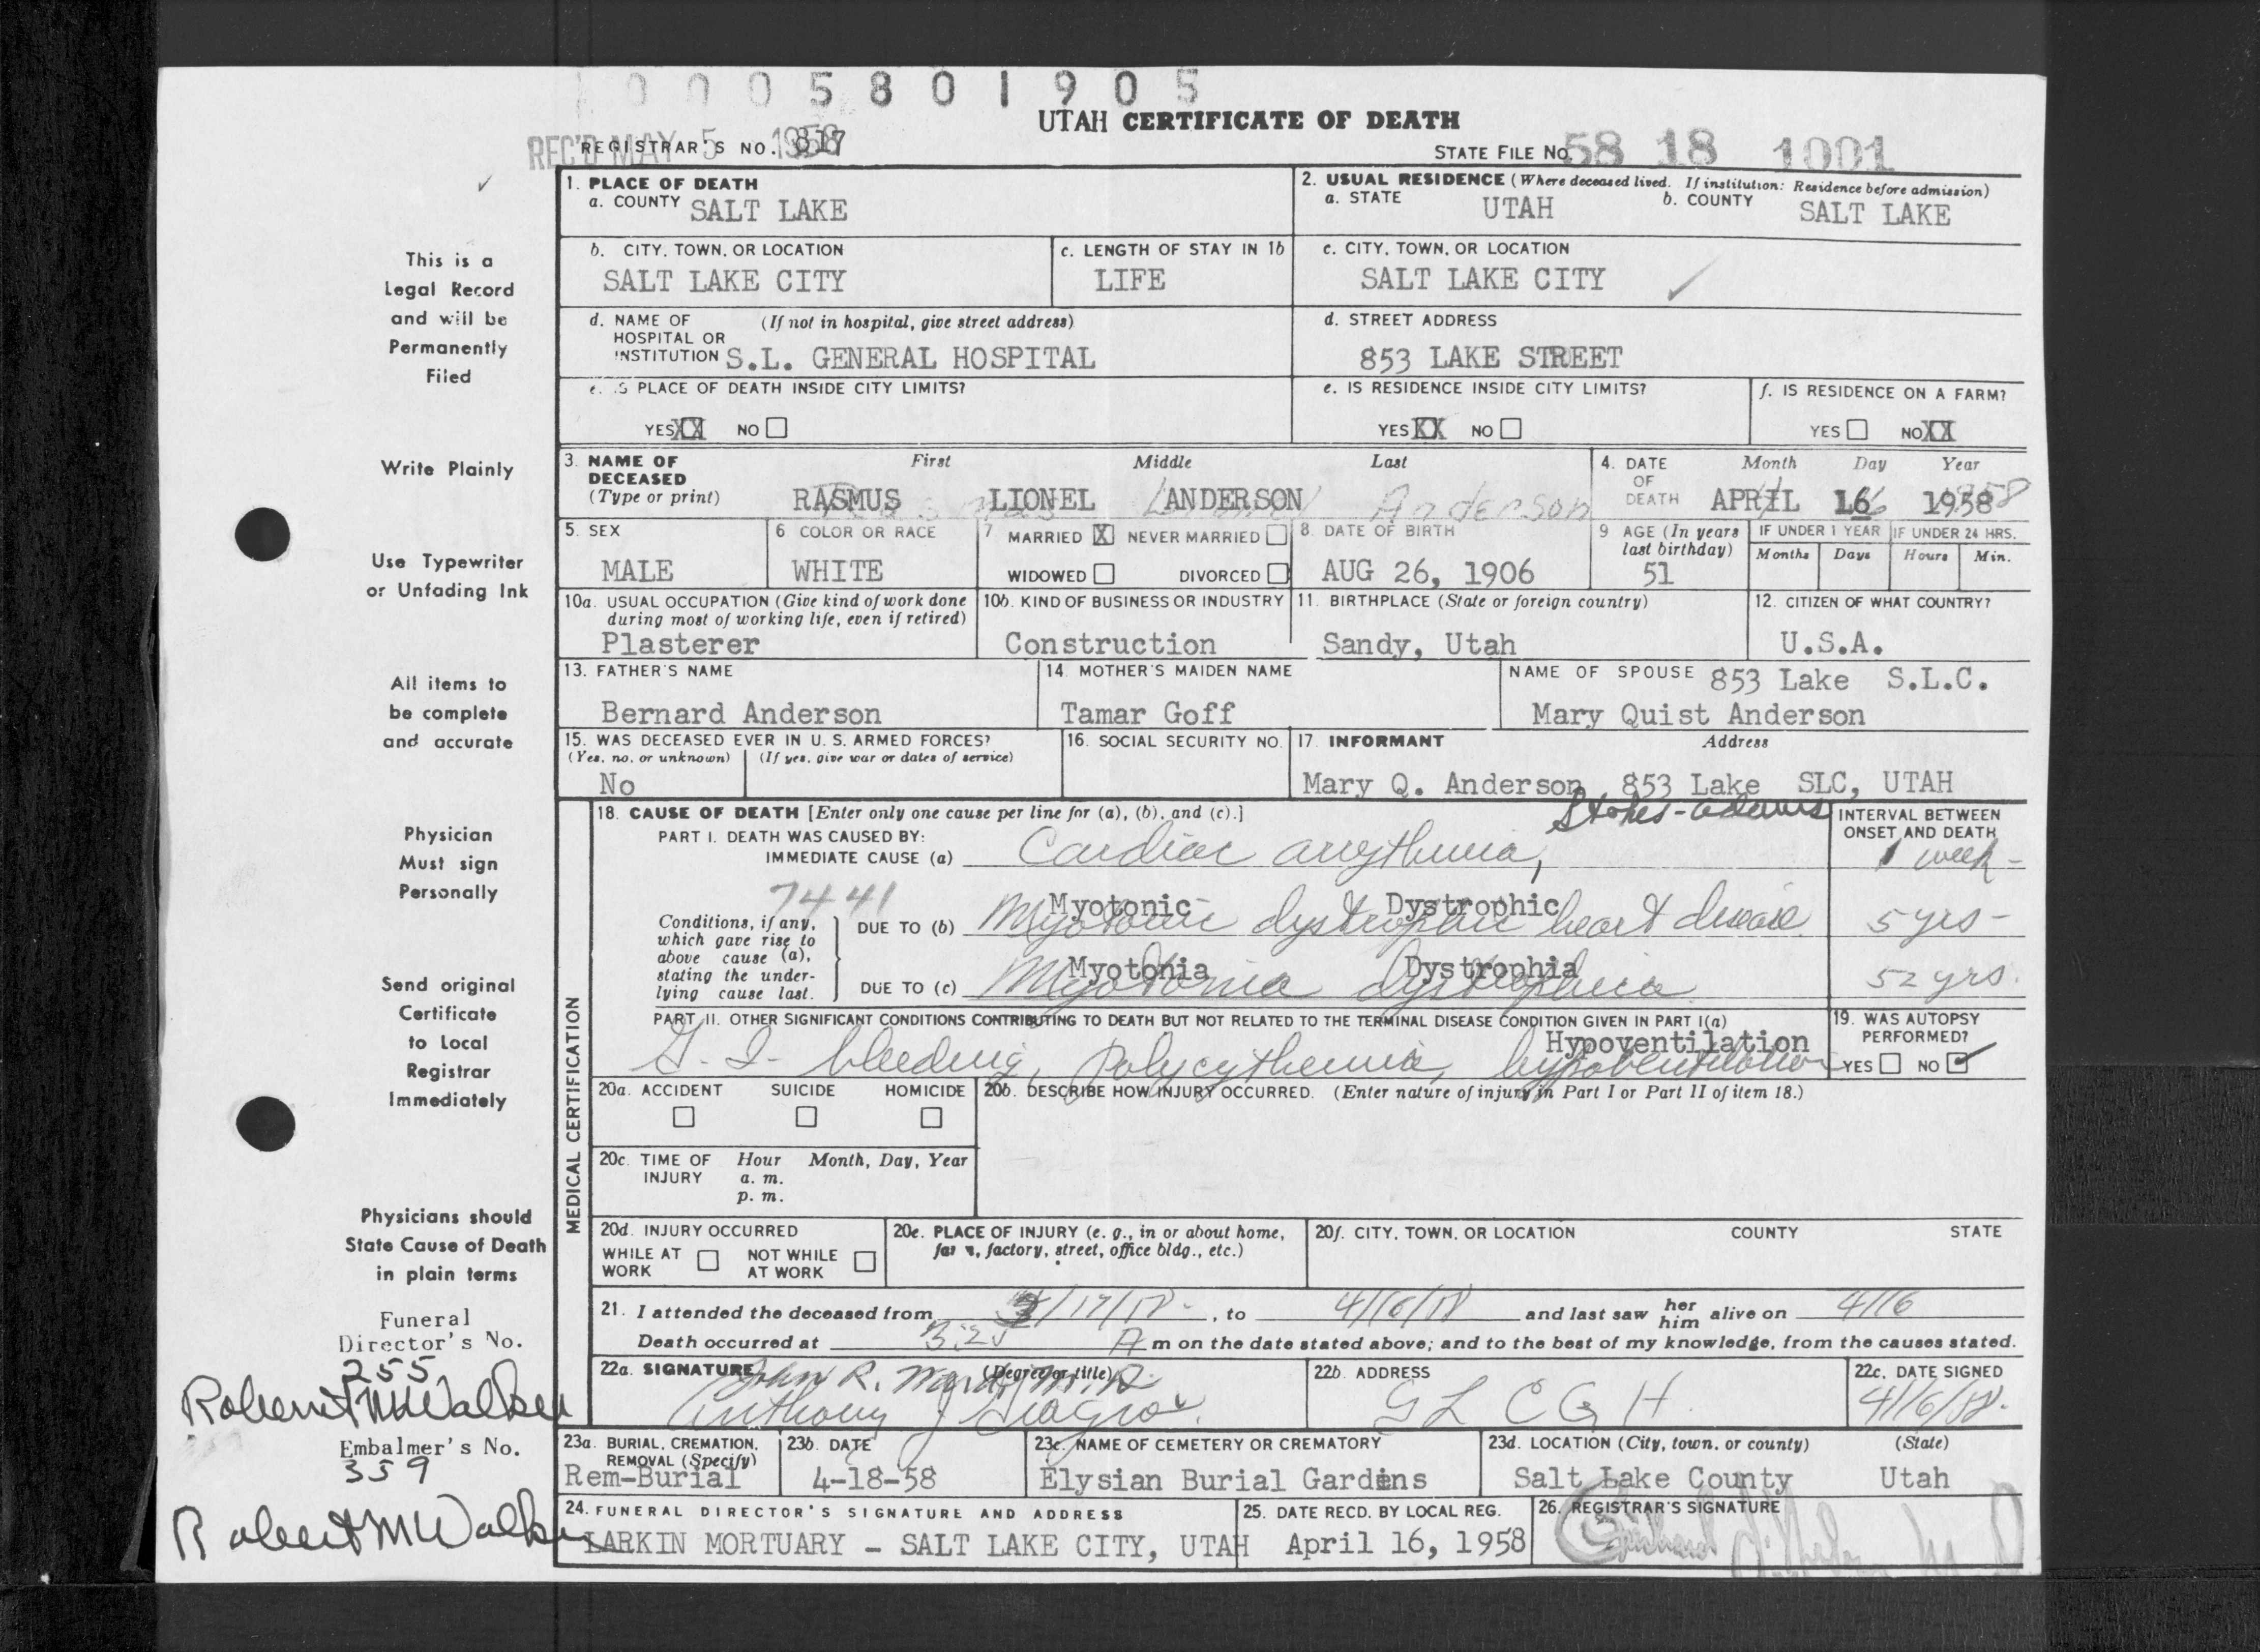 0005801905
UTAH CERTIFICATE OF DEATH
REC'D MAY 5 1958
REGISTRAR'S NO. 817
STATE FILE NO. 58 18 1001
This is a
Legal Record
and will be
Permanently
Filed
Write Plainly
Use Typewriter
or Unfading Ink
All items to
be complete
and accurate
Physician
Must sign
Personally
Send original
Certificate
to Local
Registrar
Immediately
Physicians should
State Cause of Death
in plain terms
Funeral
Director's No.
255
Robert M Walker
Embalmer's No.
359
Robert M Walker
1. PLACE OF DEATH
a. COUNTY SALT LAKE
2. USUAL RESIDENCE (Where deceased lived. If institution: Residence before admission)
a. STATE UTAH b. COUNTY SALT LAKE
b. CITY, TOWN, OR LOCATION
SALT LAKE CITY
c. LENGTH OF STAY IN 1b
LIFE
c. CITY, TOWN, OR LOCATION
SALT LAKE CITY
d. NAME OF (If not in hospital, give street address)
HOSPITAL OR
INSTITUTION S.L. GENERAL HOSPITAL
d. STREET ADDRESS
853 LAKE STREET
e. IS PLACE OF DEATH INSIDE CITY LIMITS?
YES XX NO
e. IS RESIDENCE INSIDE CITY LIMITS?
YES XX NO
f. IS RESIDENCE ON A FARM?
YES NO XX
3. NAME OF First Middle Last
DECEASED
(Type or print) RASMUS LIONEL ANDERSON Anderson
4. DATE Month Day Year
OF
DEATH APRIL 16 1958
5. SEX
MALE
6 COLOR OR RACE
WHITE
7 MARRIED X NEVER MARRIED
WIDOWED DIVORCED
8. DATE OF BIRTH
AUG 26, 1906
9 AGE (In years
last birthday)
51
IF UNDER 1 YEAR IF UNDER 24 HRS.
Months Days Hours Min.
10a. USUAL OCCUPATION (Give kind of work done
during most of working life, even if retired)
Plasterer
10b. KIND OF BUSINESS OR INDUSTRY
Construction
11. BIRTHPLACE (State or foreign country)
Sandy, Utah
12. CITIZEN OF WHAT COUNTRY?
U.S.A.
13. FATHER'S NAME
Bernard Anderson
14. MOTHER'S MAIDEN NAME
Tamar Goff
NAME OF SPOUSE 853 Lake S.L.C.
Mary Quist Anderson
15. WAS DECEASED EVER IN U. S. ARMED FORCES?
(Yes, no, or unknown) (If yes, give war or dates of service)
No
16. SOCIAL SECURITY NO.
17. INFORMANT Address
Mary Q. Anderson 853 Lake SLC, UTAH
MEDICAL CERTIFICATION
18. CAUSE OF DEATH [Enter only one cause per line for (a), (b), and (c).]
Stokes-Adams
PART I. DEATH WAS CAUSED BY:
IMMEDIATE CAUSE (a) Cardiac arrythmia,
INTERVAL BETWEEN
ONSET AND DEATH
1 week -
7441
Conditions, if any,
which gave rise to
above cause (a),
stating the under-
lying cause last.
Myotonic Dystrophic
DUE TO (b) Myotonic dystrophic heart disease 5 yrs -
Myotonia Dystrophia
DUE TO (c) Myotonia dystrophica 52 yrs.
PART II. OTHER SIGNIFICANT CONDITIONS CONTRIBUTING TO DEATH BUT NOT RELATED TO THE TERMINAL DISEASE CONDITION GIVEN IN PART I(a)
Hypoventilation
G. I. bleeding, Polycythemia, hypoventilation
19. WAS AUTOPSY
PERFORMED?
YES NO
20a. ACCIDENT SUICIDE HOMICIDE
20b. DESCRIBE HOW INJURY OCCURRED. (Enter nature of injury in Part I or Part II of item 18.)
20c. TIME OF Hour Month, Day, Year
INJURY a. m.
p. m.
20d. INJURY OCCURRED
WHILE AT NOT WHILE
WORK AT WORK
20e. PLACE OF INJURY (e. g., in or about home,
farm, factory, street, office bldg., etc.)
20f. CITY, TOWN, OR LOCATION COUNTY STATE
21. I attended the deceased from /17/58 , to 4/16/58 and last saw her him alive on 4/16
Death occurred at 3:25 A m on the date stated above; and to the best of my knowledge, from the causes stated.
22a. SIGNATURE (Degree or title)
John R. M.D.
Anthony J
22b. ADDRESS
S L C G H
22c. DATE SIGNED
4/16/58.
23a. BURIAL, CREMATION,
REMOVAL (Specify)
Rem-Burial
23b. DATE
4-18-58
23c. NAME OF CEMETERY OR CREMATORY
Elysian Burial Gardens
23d. LOCATION (City, town, or county) (State)
Salt Lake County Utah
24. FUNERAL DIRECTOR'S SIGNATURE AND ADDRESS
LARKIN MORTUARY - SALT LAKE CITY, UTAH
25. DATE RECD. BY LOCAL REG.
April 16, 1958
26. REGISTRAR'S SIGNATURE